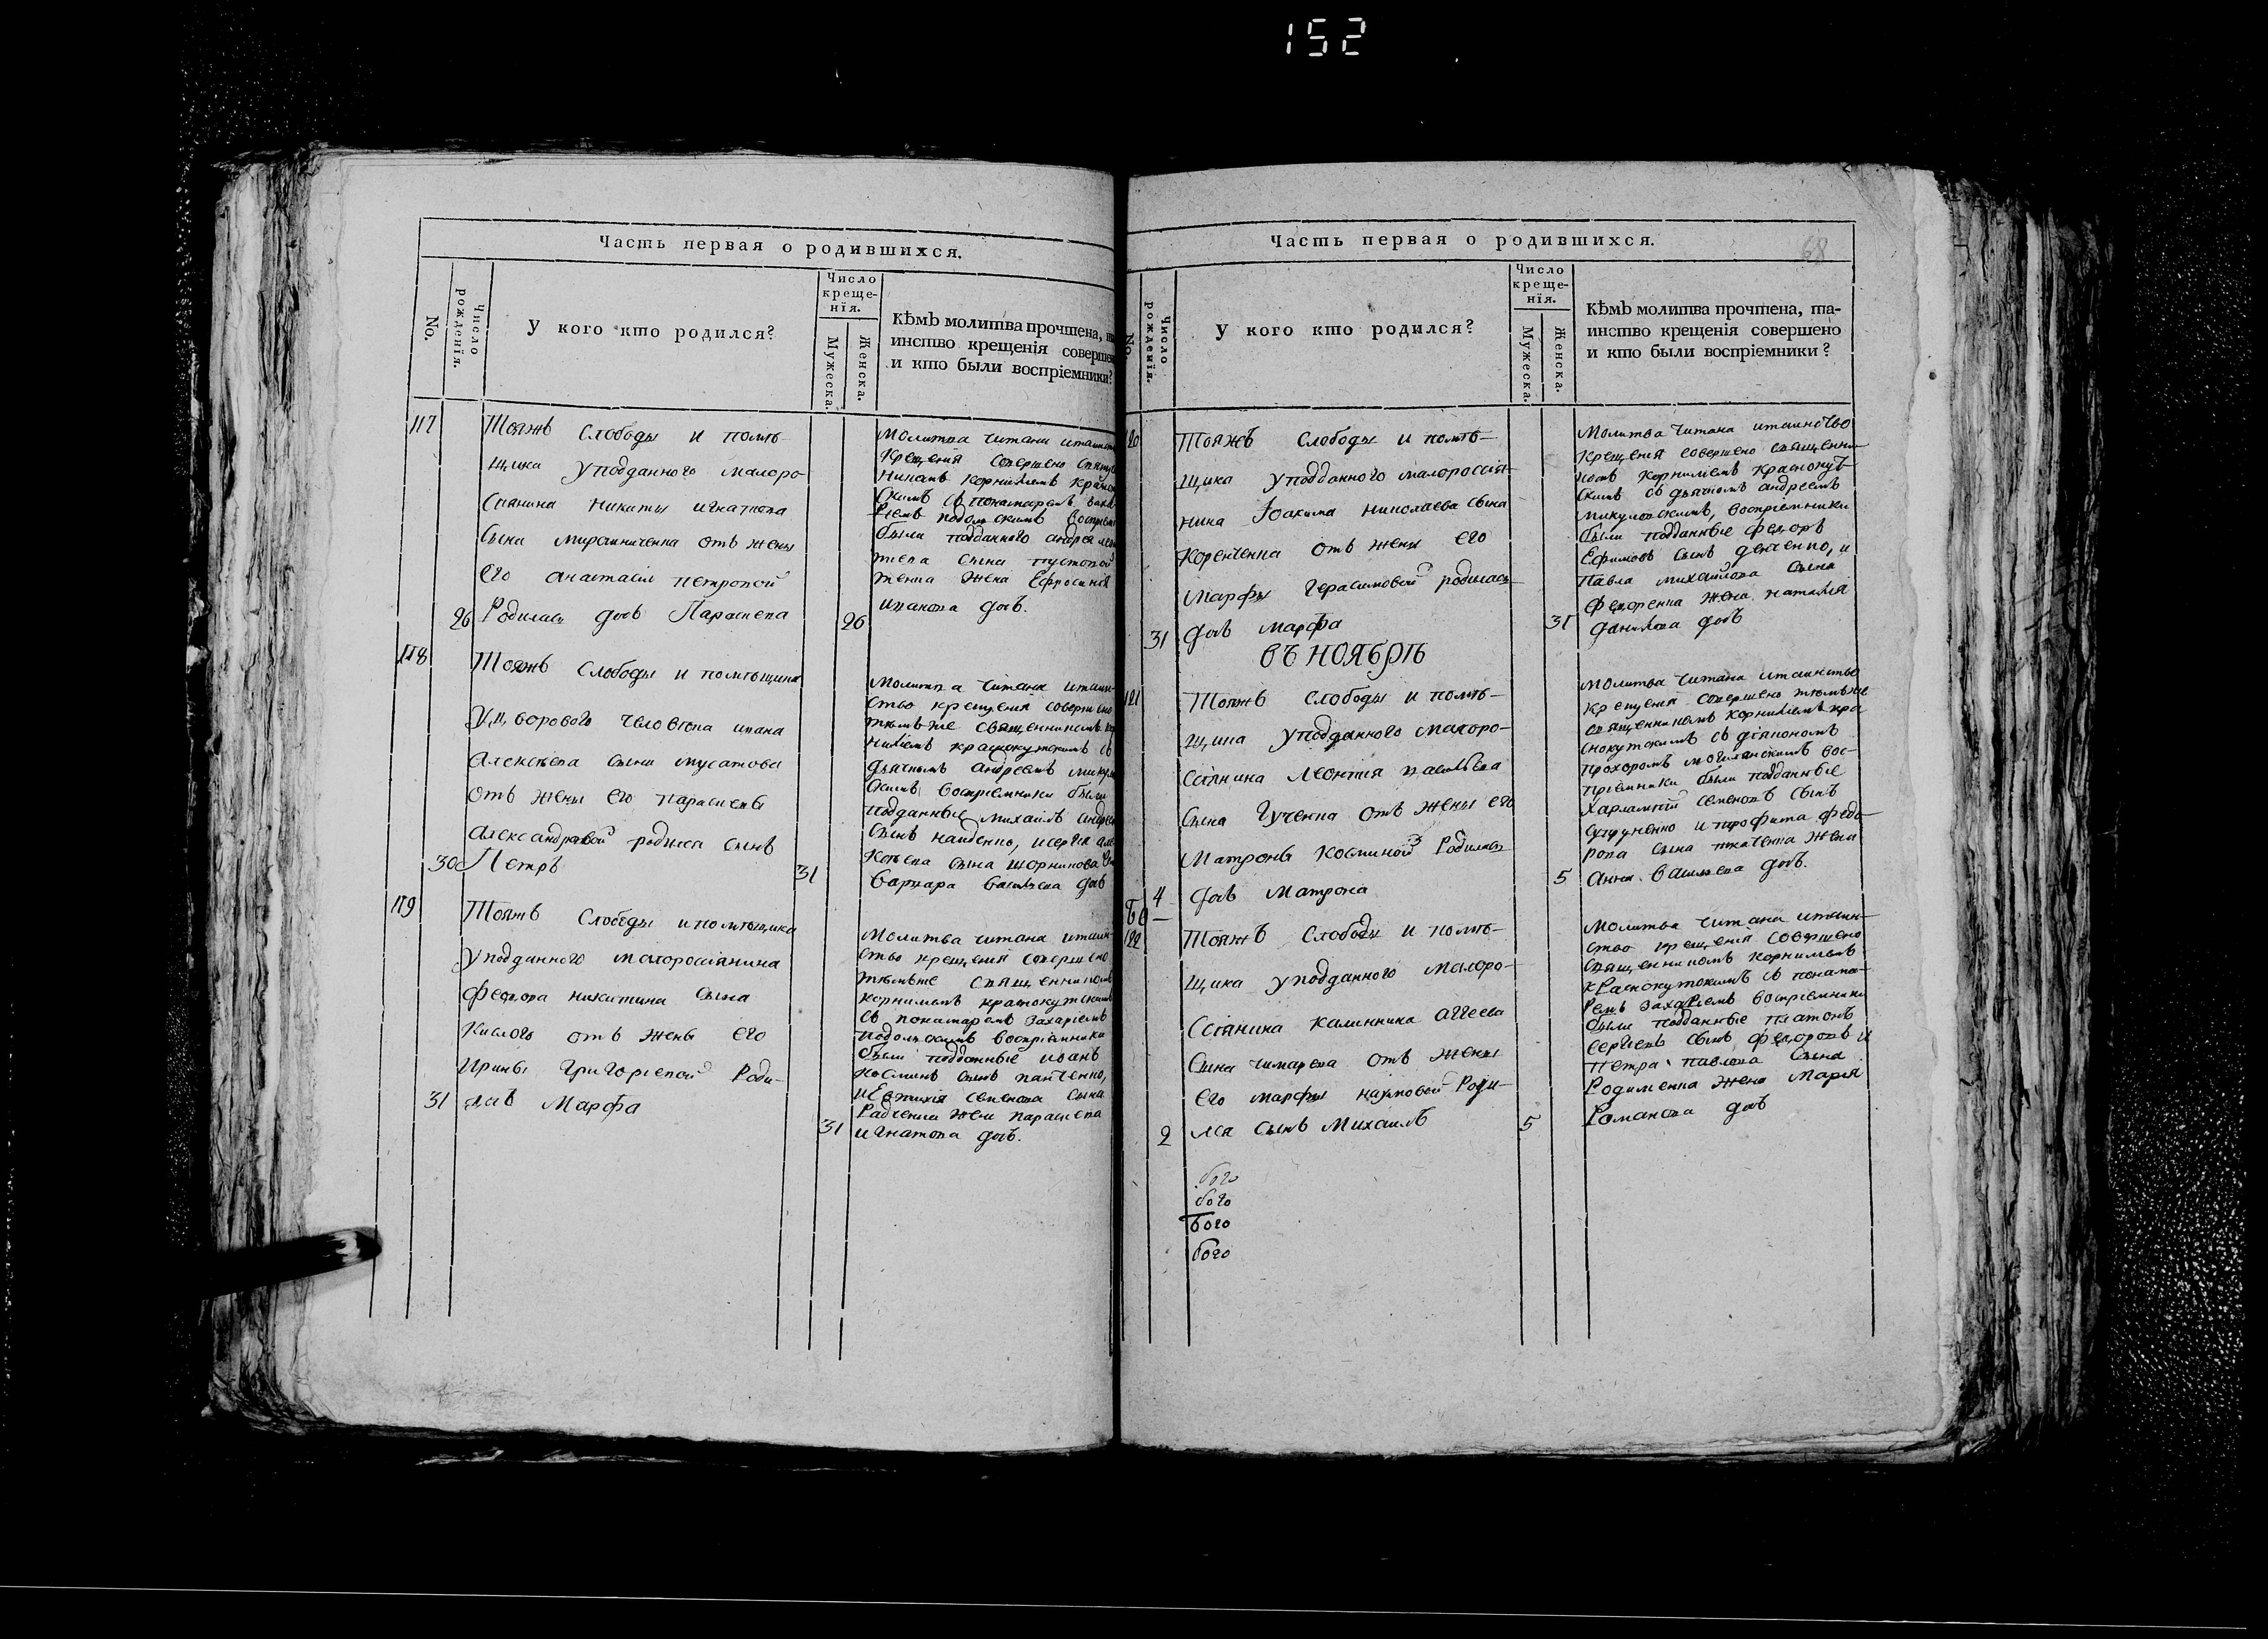 152
Часть первая о родившихся.
No.
Число рожденія.
У кого кто родился?
Число
креще-
нія.
Мужеска.
Женска.
Кѣмъ молитва прочтена,
инство крещенія соверше
и кто были воспріемники?
117
Тояжъ Слободы и помѣ-
щика уподданного малоро-
Сіянина Никиты игнатова
Сына отъ жены
его анастасіи петровой
26 Родилась дочь Параскева
26
Молитва читана итаинст
Крещенія совершено Свящ
Никомъ Корниліемъ Красно
Скимъ съ понамаремъ Заха
Ріемъ подольскимъ Воспріем
были подданного андрея
Сына
женка жена Ефросинія
иванова дочь.
118
Тояжъ Слободы и помѣщика
Удворового человѣка ивана
алексѣева сына мусатова
отъ жены его параскевы
александровой родился сынъ
30 Петръ
31
Молитва читана итаин-
ство крещенія совершено
тѣмъ-же Священникомъ Кор
ниліемъ краснокутскимъ съ
дьячкомъ андреемъ микул
Скимъ воспріемники были
подданные михаилъ андрее
Сынъ найденко, исергія але
Ксѣева сына
варвара васильева дочь
119
Тояжъ Слободы ипомѣщика
уподданного малороссіянина
Феодора никитина Сына
Кислого отъ жены его
Ирины Григоріевой Роди-
31 лась Марфа
31
Молитва читана итаин-
ство крещенія совершено
тѣмъже Священникомъ
Корниліемъ краснокутскимъ
съ понамаремъ Захаріемъ
подольскимъ воспріемники
были подданные иванъ
Косминъ сынъ панченко,
иЕвтихія семенова сына
Радченка жена параскева
игнатова дочь.
Часть первая о родившихся.
68
No.
Число рожденія.
У кого кто родился?
Число
креще-
нія.
Мужеска.
Женска.
Кѣмъ молитва прочтена, та-
инство крещенія совершено
и кто были воспріемники?
120
Тояжъ Слободы и помѣ-
щика уподданного малороссія-
нина Іоакима николаева сына
Коренченка отъ жены его
Марфы Герасимовой родилась
31 дочь марфа
31
Молитва читана итаинство
Крещенія совершено священни-
комъ Корниліемъ краснокут-
скимъ съ дьячкомъ андреемъ
микуловскимъ, воспріемники
были подданные феодоръ
Ефимовъ сынъ демченко, и
павла михайлова сына
феоренка жена наталія
данилова дочь
въ НОЯБРѢ
121
Тояжъ Слободы и помѣ-
щика уподданного малоро-
ссіянина Леонтія васильева
Сына Гученка отъ жены его
Матроны Косминой Родилась
4 дочь Матрона
5
Молитва читана итаинство
крещенія совершено тѣмъже
священникомъ корниліемъ кра
снокутскимъ съ діакономъ
прохоромъ могилянскимъ вос-
пріемники были подданные
харлампій семеновъ сынъ
супруненко и трофима федо-
рова сына ткаченка жена
Анна васильева дочь.
122
Тояжъ Слободы и помѣ-
щика уподданного малоро-
ссіянина калинника аггеева
Сына чимарева отъ жены
его марфы наумовой Роди-
2 лся сынъ Михаилъ
5
Молитва читана итаин-
ство крещенія совершено
Священникомъ Корниліемъ
Краснокутскимъ съ понама-
ремъ Захаріемъ воспріемники
были подданные платонъ
сергѣевъ сынъ феодоровъ и
петра павлова Сына
Родименка жена Марія
Романова дочь
бого
бого
Бого
бого